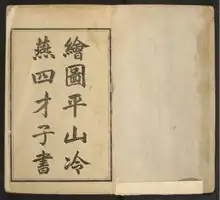 繪圖平山冷
燕四才子書